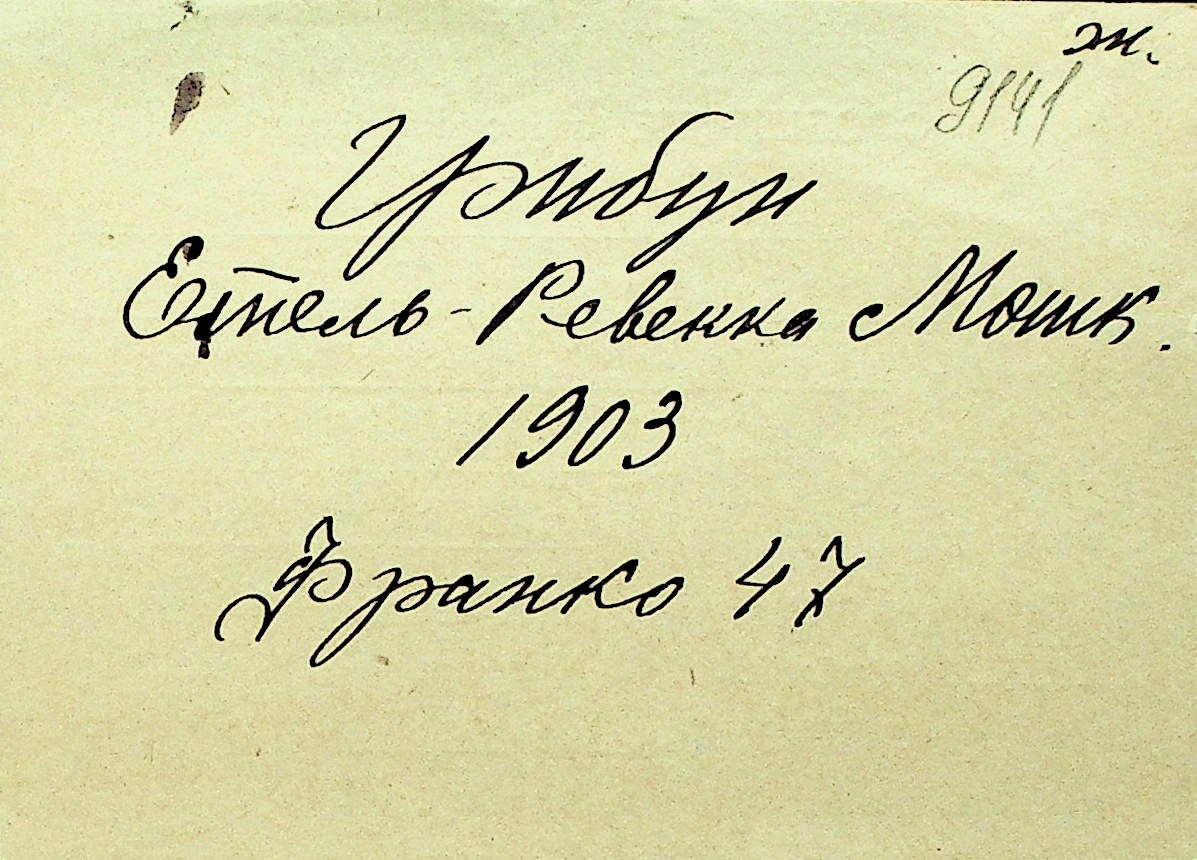 ж.
9141
Грибун
Етель-Ревекка Мошк.
1903
Франко 47